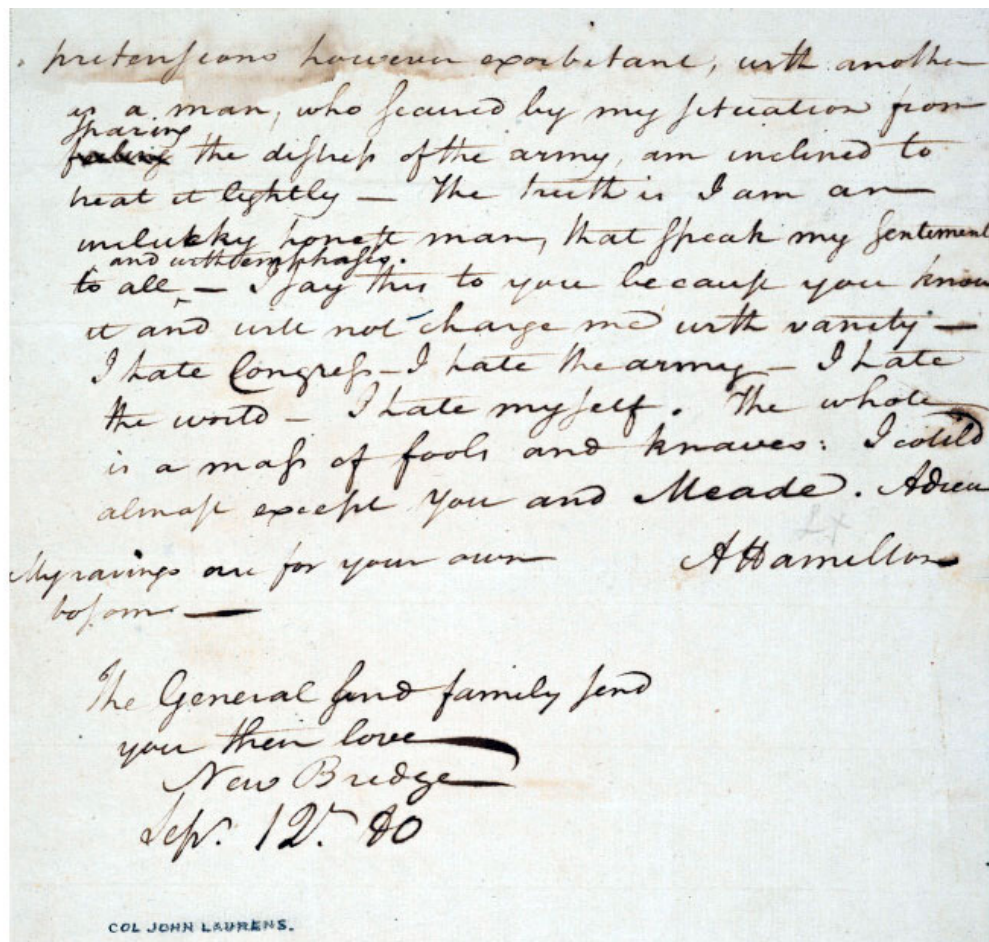 pretensions however exorbitant, with another
as a man, who secured by my situation from
sharing
feeling the distress of the army, am inclined to
treat it lightly — The truth is I am an
unlucky honest man, that speak my sentiments
and with emphasis.
to all — I say this to you because you know
it and will not charge me with vanity —
I hate Congress — I hate the army — I hate
the world — I hate myself. The whole
is a mass of fools and knaves: I could
almost except you and Meade. Adieu
A Hamilton
My ravings are for your own
bosom —
The General and family send
you their love
New Bridge
Sepr. 12. 80
COL JOHN LAURENS.